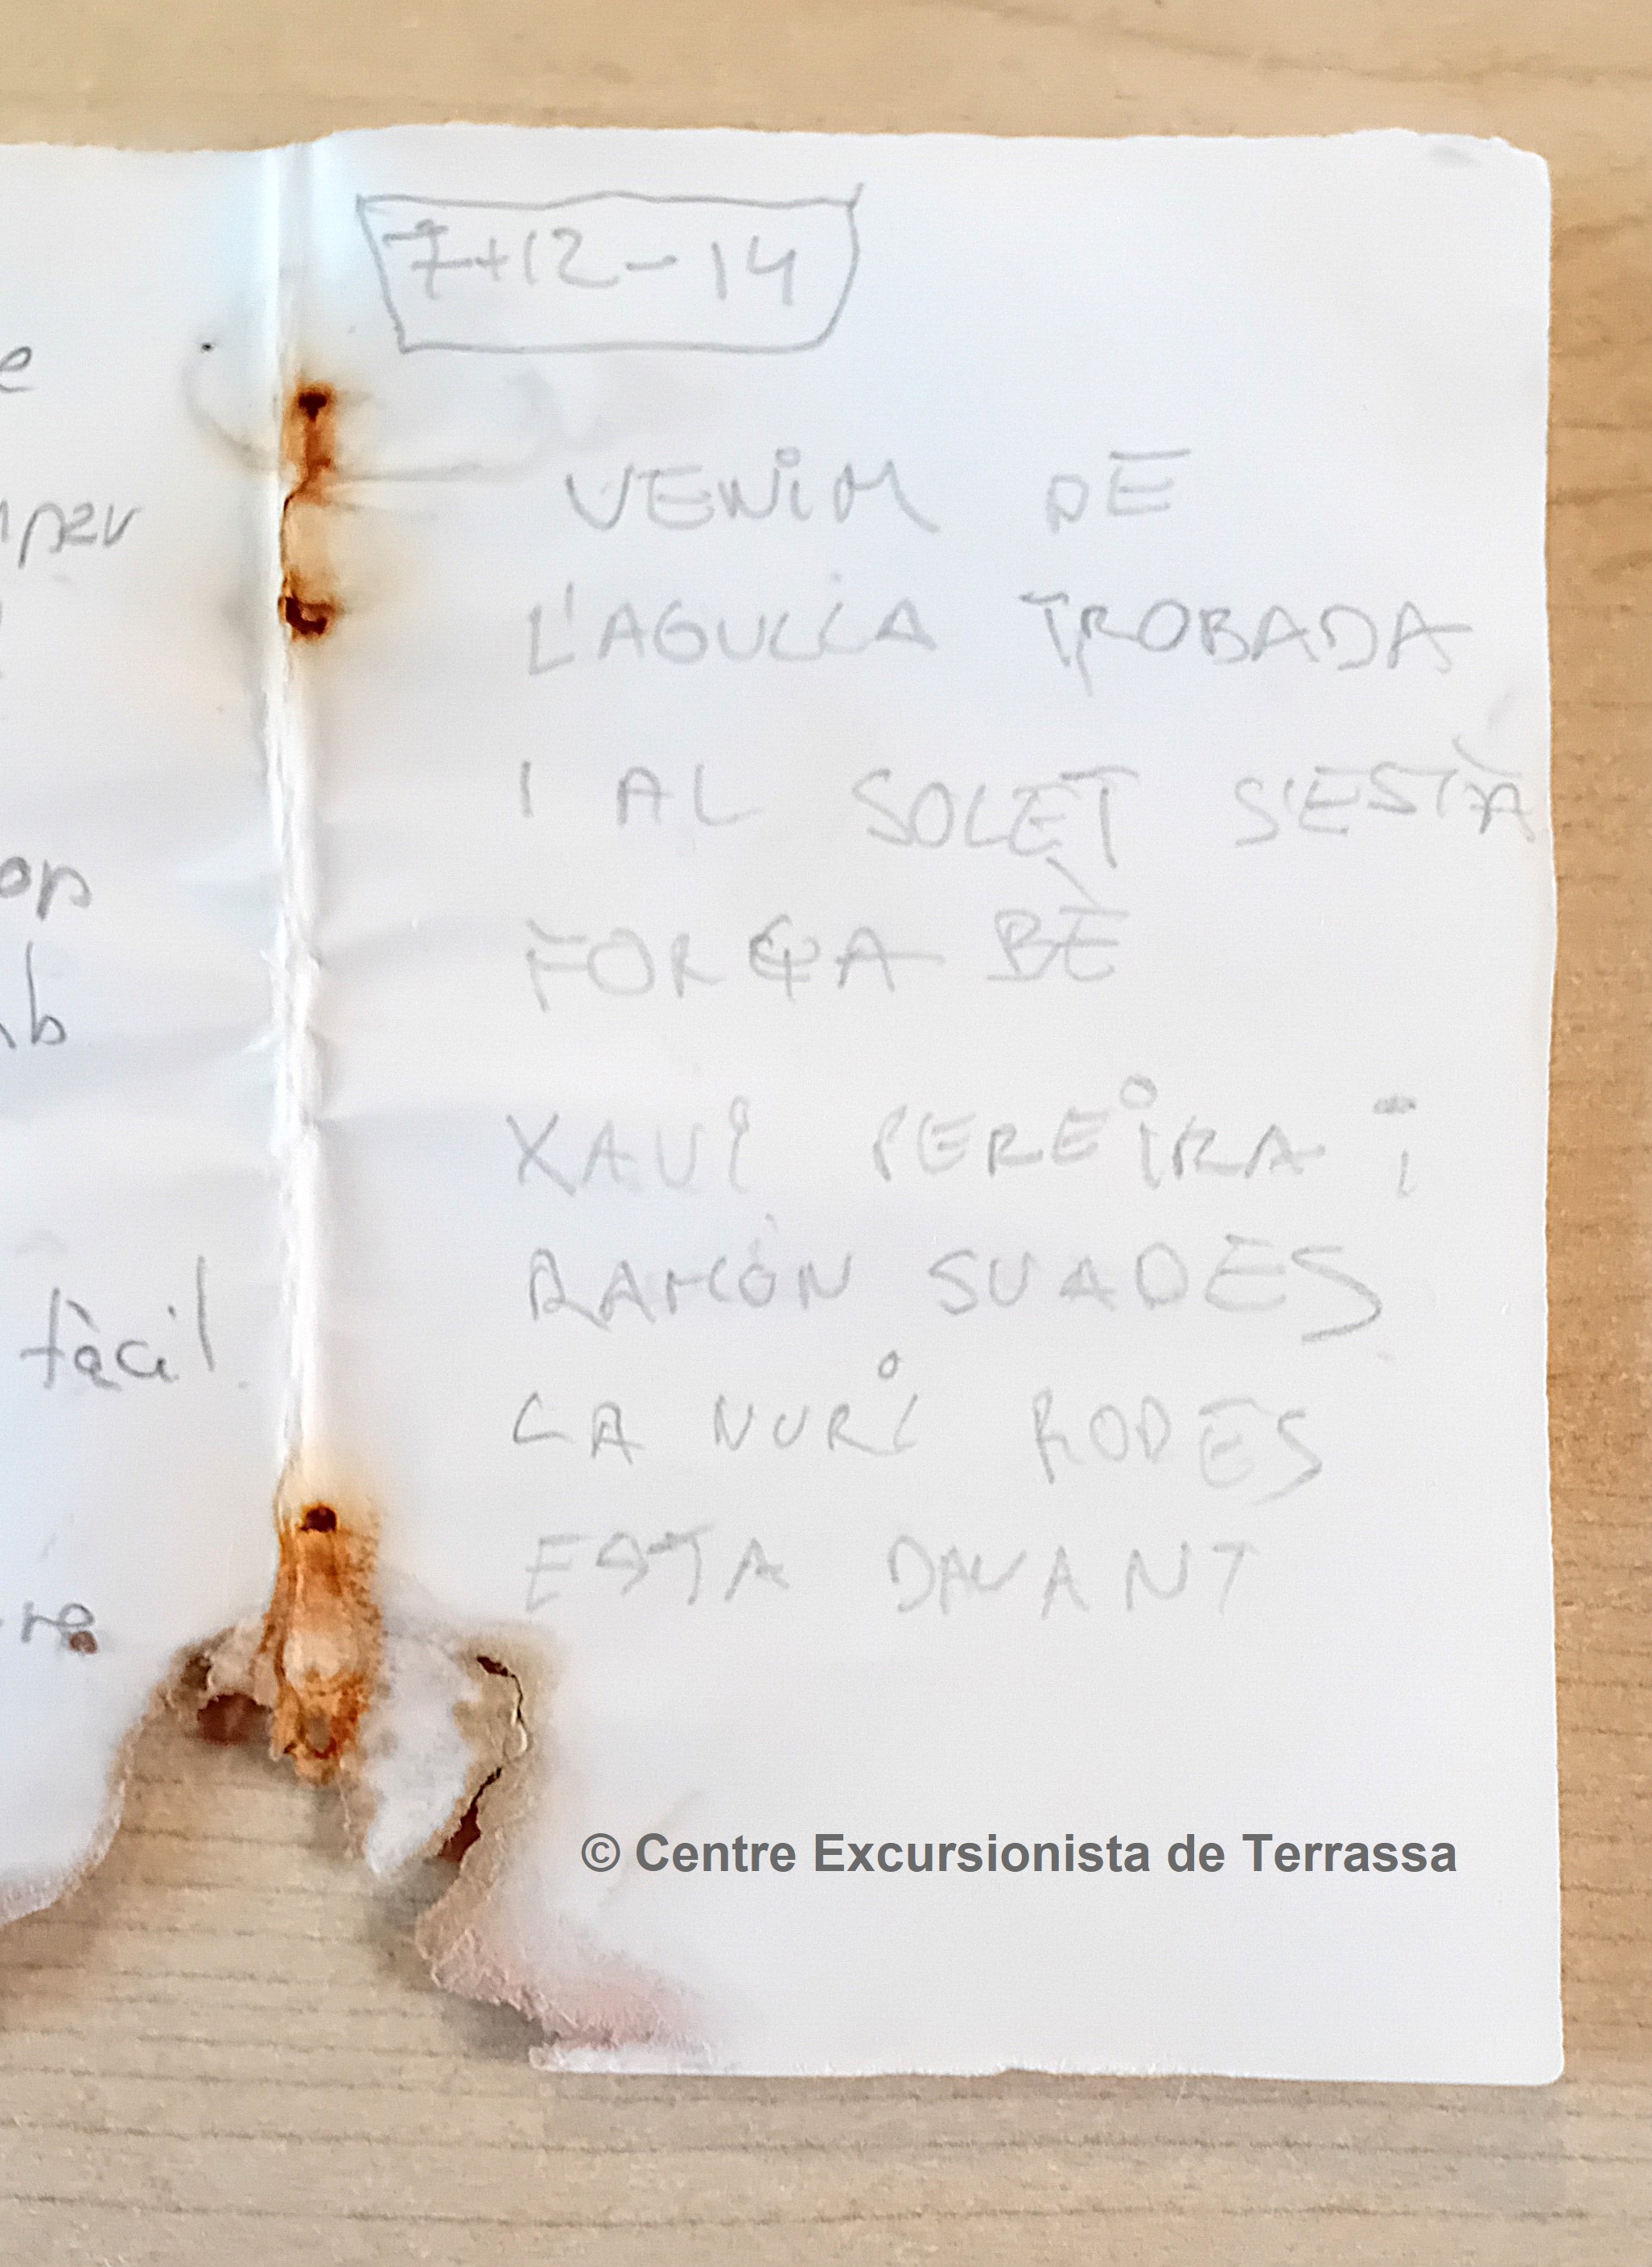 7+12-14
VENIM DE
L'AGULLA TROBADA
I AL SOLET S'ESTÀ
FORÇA BÈ
XAVI PEREIRA i
RAMÓN SUADES
LA NURI RODES
ESTA DAVANT
fàcil
© Centre Excursionista de Terrassa